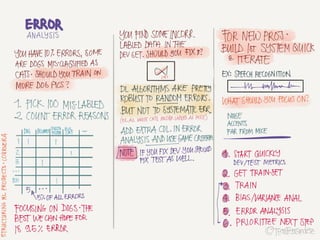 ERROR
ANALYSIS
YOU HAVE 10% ERRORS, SOME
ARE DOGS MISCLASSIFIED AS
CATS. SHOULD YOU TRAIN ON
MORE DOG PICS?
1. PICK 100 MISLABELED
2. COUNT ERROR REASONS
DOG
1
2
3
4
5
5% OF ALL ERRORS
FOCUSING ON DOGS. THE
BEST WE CAN HOPE FOR
IS 9.5% ERROR
YOU FIND SOME INCORR.
LABELED DATA IN THE
DEV SET. SHOULD YOU FIX IT?
DL ALGORITHMS ARE PRETTY
ROBUST TO RANDOM ERRORS.
BUT NOT TO SYSTEMATIC ERR.
ADD EXTRA COL. IN ERROR
ANALYSIS AND USE SAME CRITERIA
NOTE IF YOU FIX DEV YOU SHOULD
FIX TEST AS WELL.
FOR NEW PROJ.
BUILD 1st SYSTEM QUICK
& ITERATE
EX: SPEECH RECOGNITION
WHAT SHOULD YOU FOCUS ON?
NOISE
ACCENTS
FAR FROM MIKE
1. START QUICKLY
DEV/TEST METRICS
2. GET TRAIN-SET
3. TRAIN
4. BIAS/VARIANCE ANAL
5. ERROR ANALYSIS
6. PRIORITIZE NEXT STEP
STRUCTURING ML PROJECTS · COURSERA
© TessFerrandez